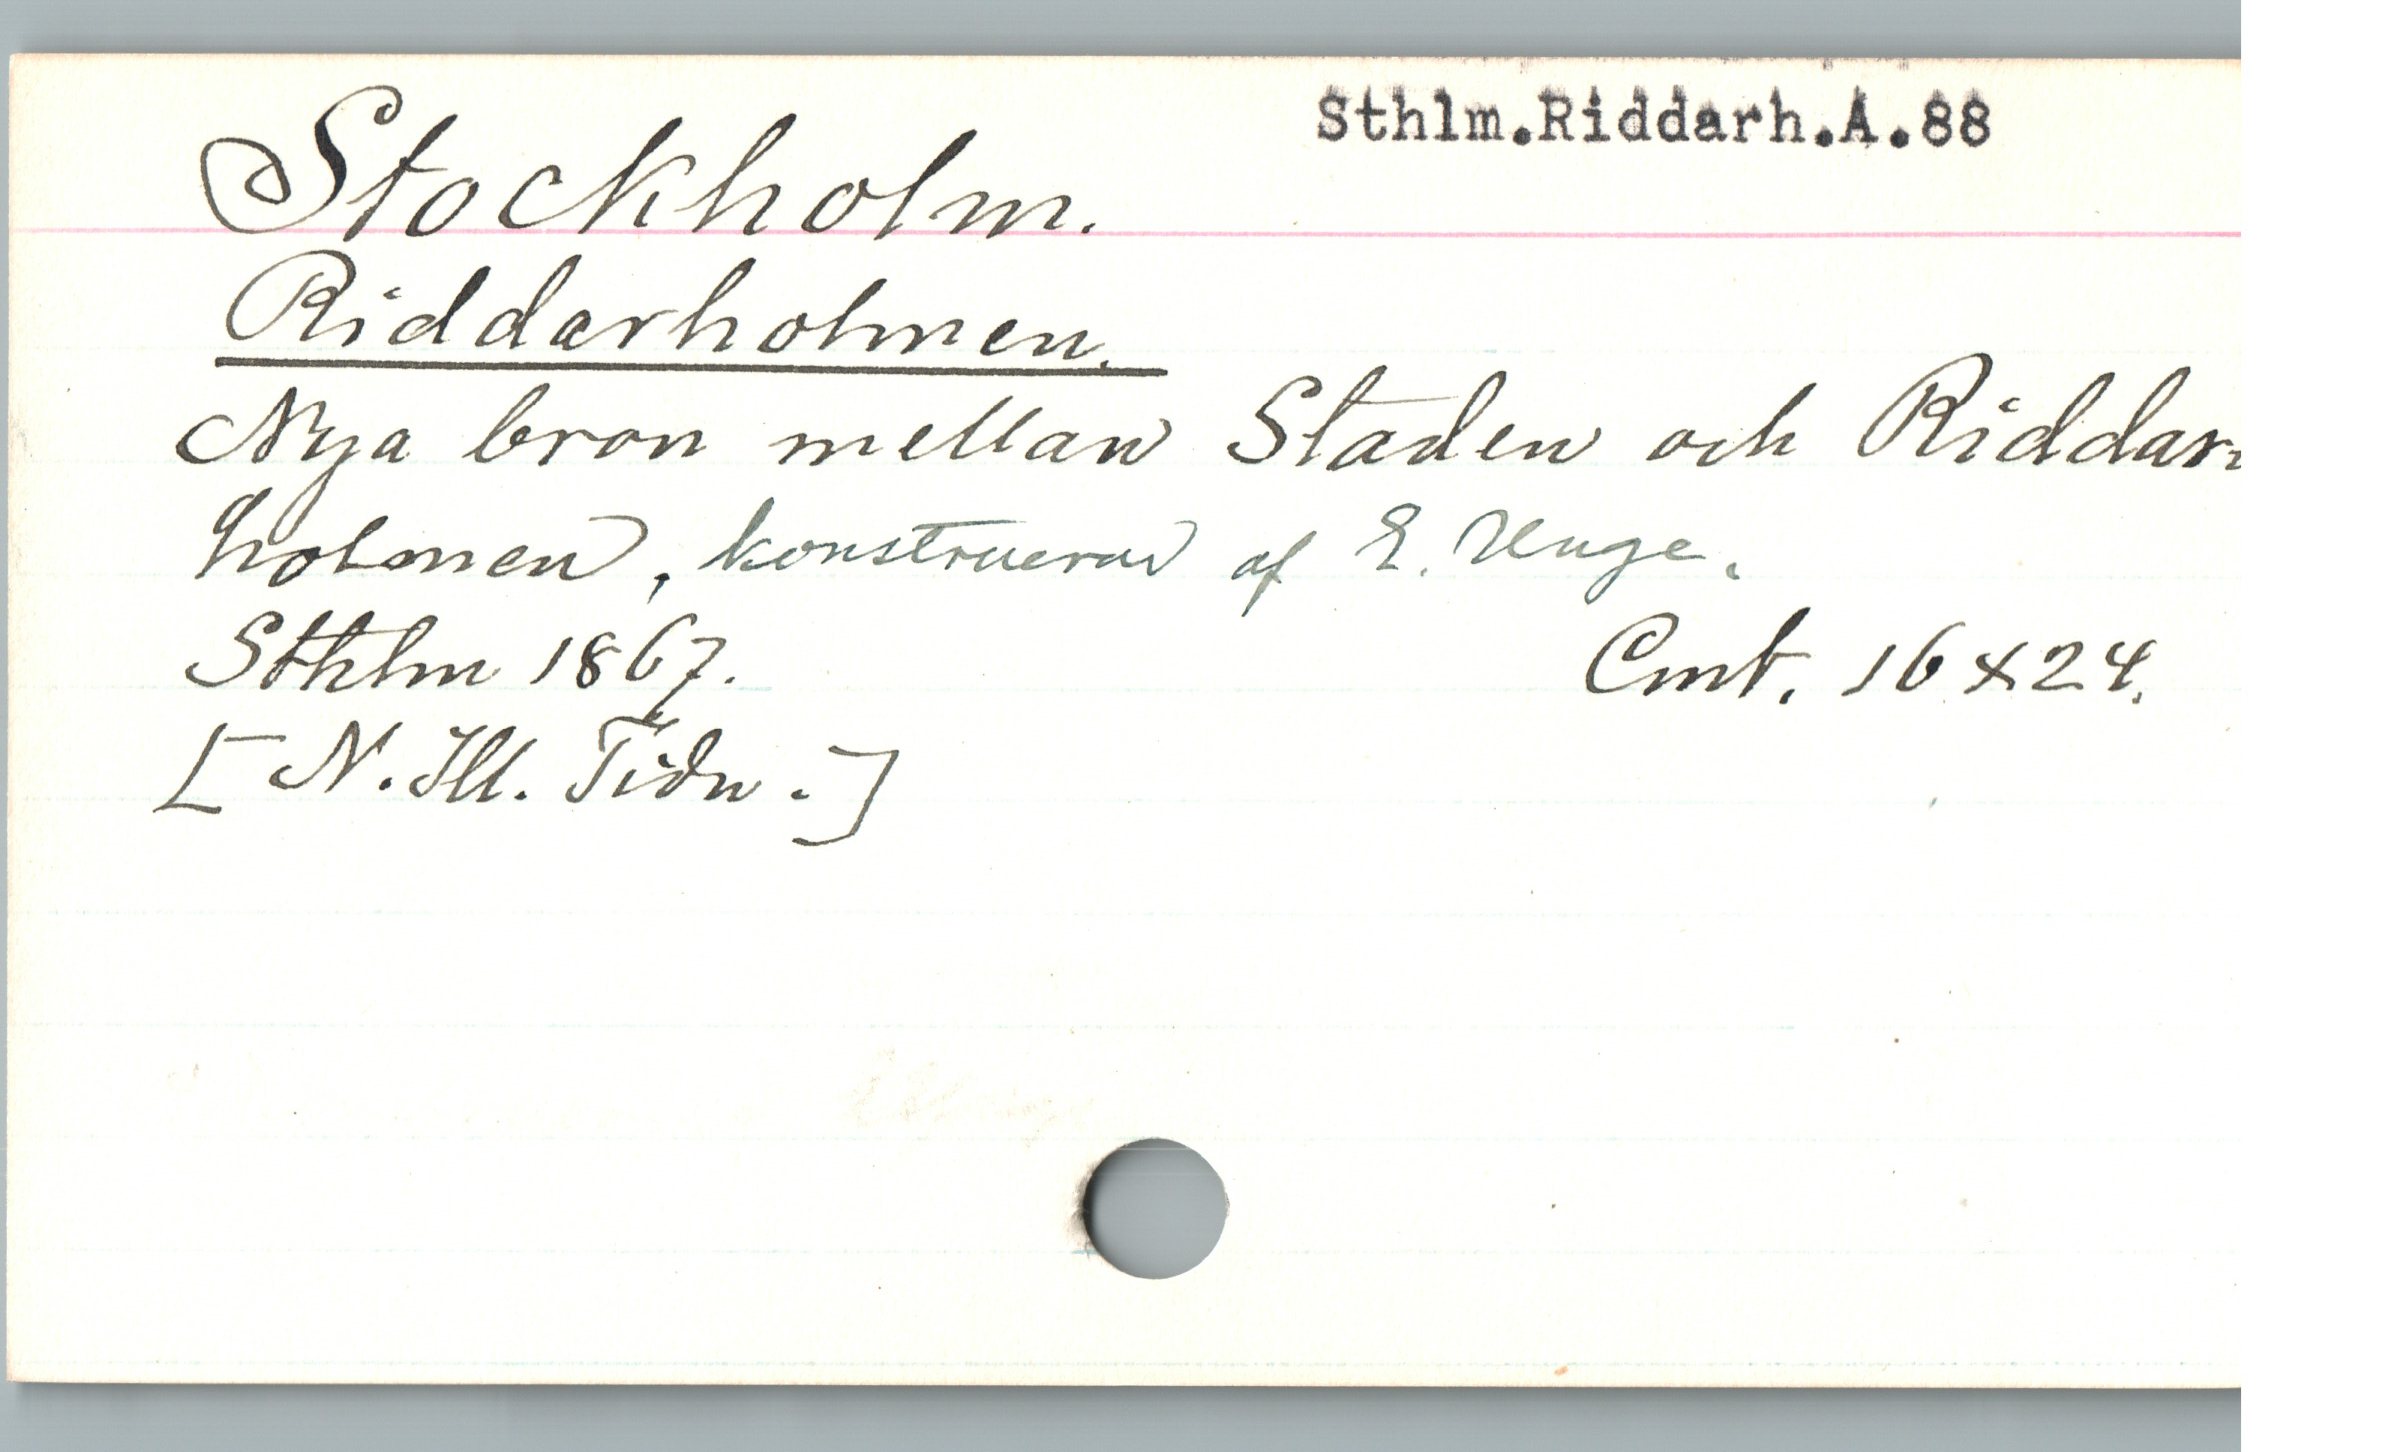 Sthlm.Riddarh.A.88
Stockholm.
Riddarholmen.
Nya bron mellan Staden och Riddar-
holmen, konstruerad af E. Unge.
Sthlm 1867.
Cmt. 16x24.
[N. Ill. Tidn.]